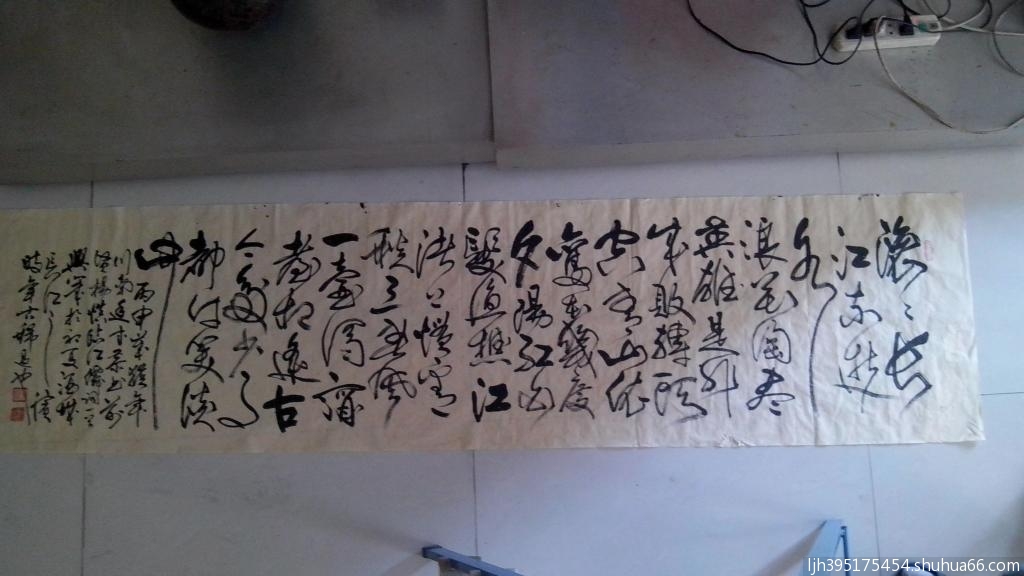 滚〻長
江东逝
水
浪花淘尽
英雄是非
成敗轉頭
空青山依
舊在幾度
夕陽紅白
髮渔樵江
渚上慣看
秋月春風
一壶濁酒
喜相逢古
今多少事
都付笑談
中
丙申年
長江
時年
ljh395175454.shuhua66.com